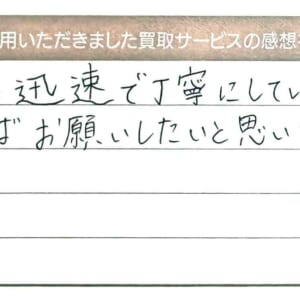 用いただきました買取サービスの感想
迅速で丁寧にしてい
ばお願いしたいと思い